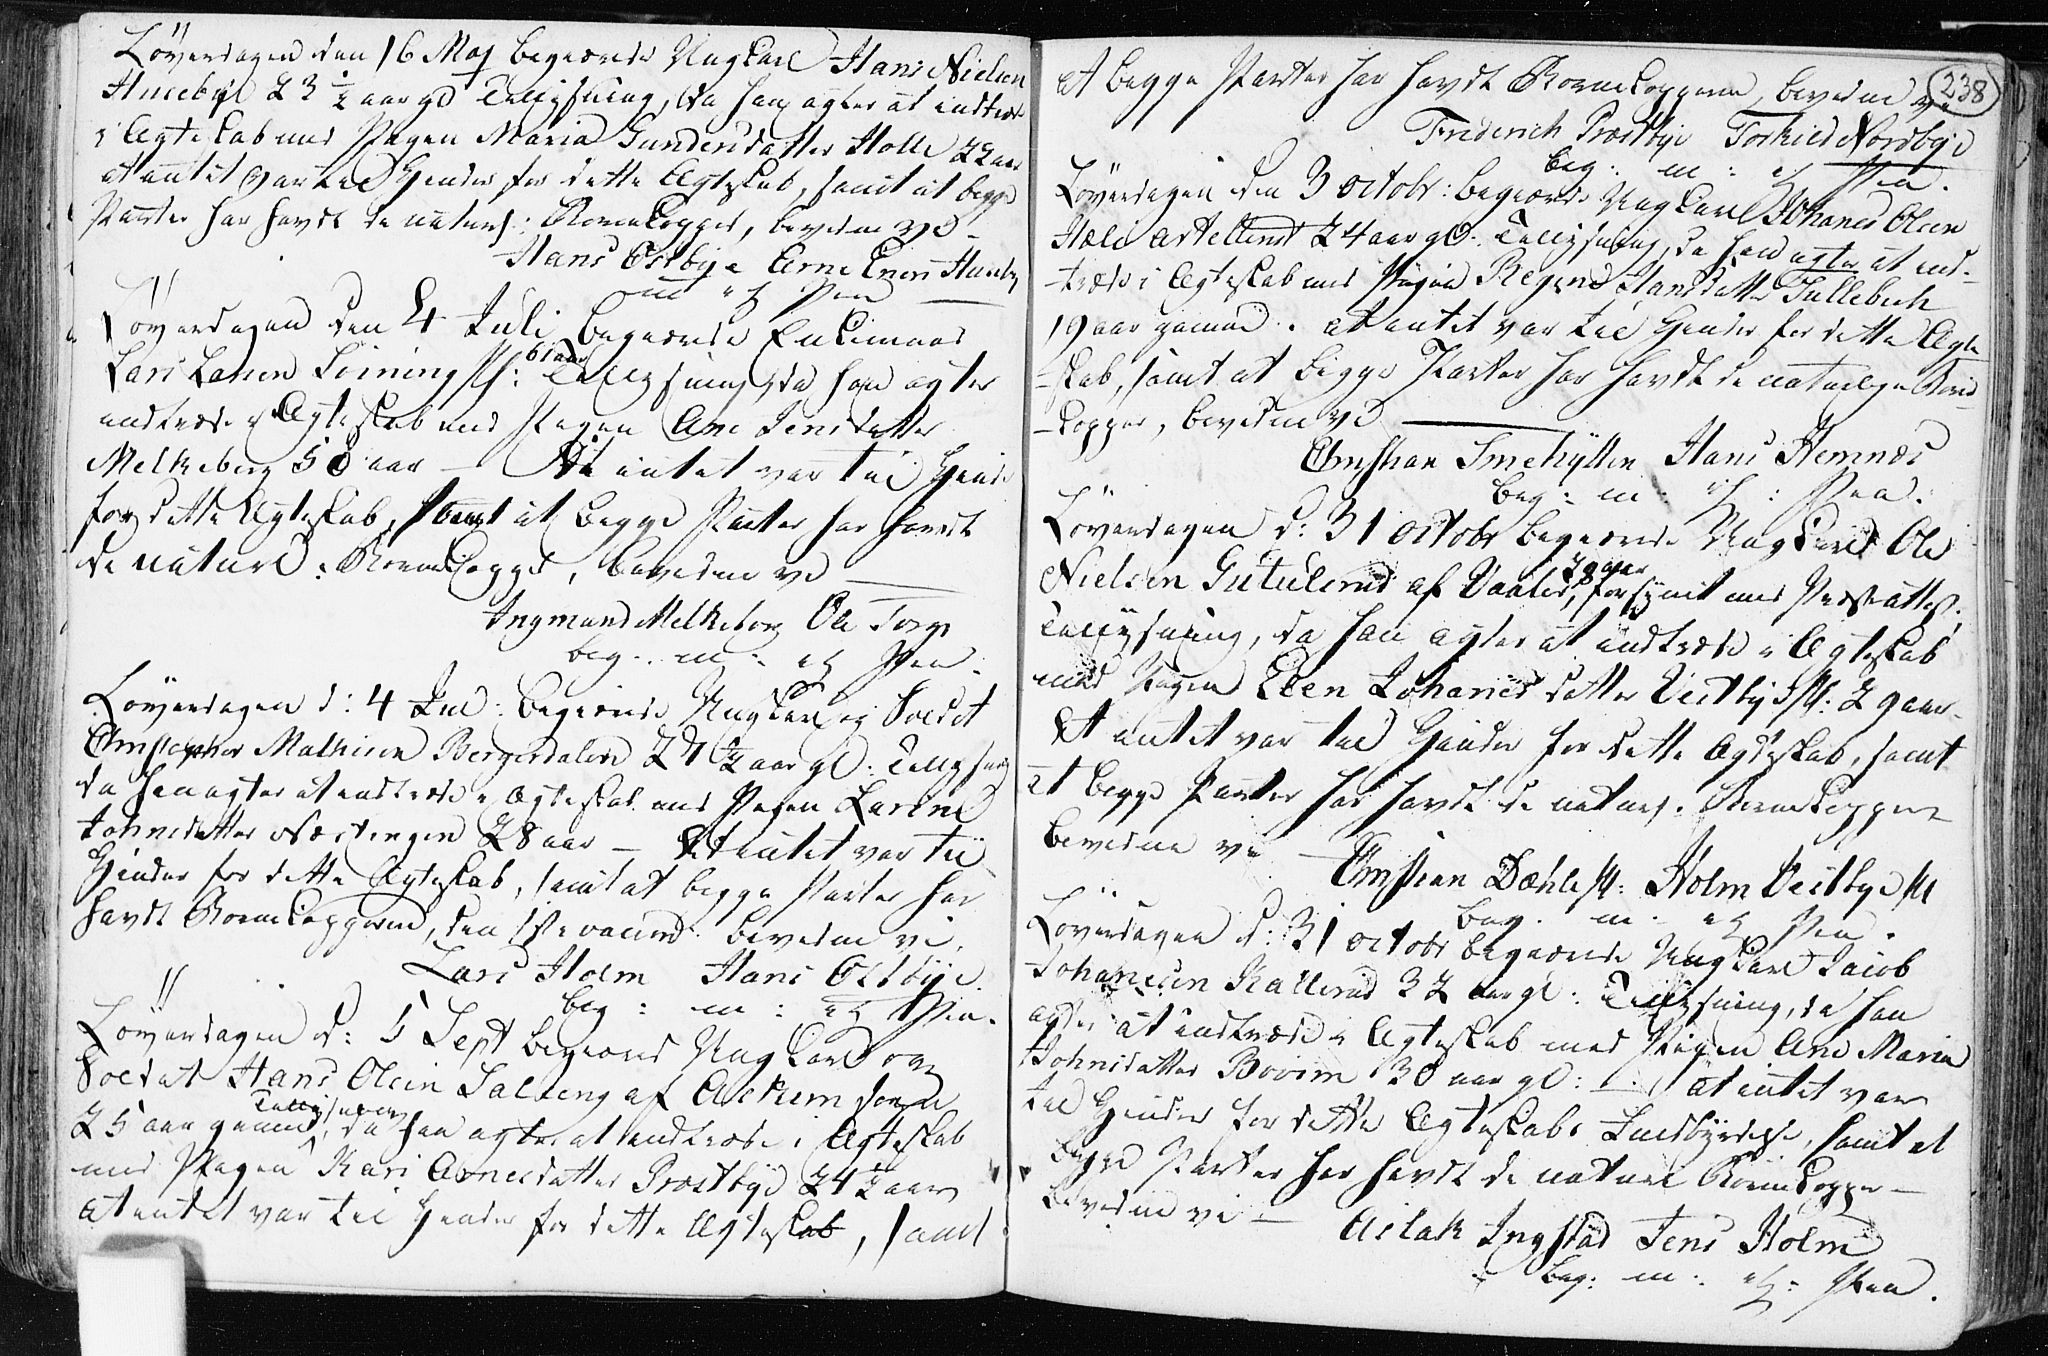 Löverdagen den 16 Maj begierede Ungkarl Hans Nielsen
Husebÿe 23 1/2 aar gl Tillÿsning, da han agter at indtrede
i Ægteskab med Pigen Maria Gundersdatter Holle 22 aar
at intet var til Hinder for dette Ægteskab, samt at begge
Parter har havdt de naturl: Børnekopper, bevidne vi
Hans Ostbÿe Arne Husebÿ
m: p: Pen
Löverdagen den 4 Juli begierede Enkemand
Lars Larsen 61 aar Tillÿsning, da han agter
indtrede i Ægteskab med Pigen Ane Jensdatter
Melkeberg 50 aar — At intet var til Hinder
for dette Ægteskab, samt at begge Parter har havdt
de naturl: Børnekopper, bevidne vi
Ingmund Melkeberg Ole Torp
beg: m: p: Pen.
Löverdagen d: 4 Jul: begierede Ungkarl og Soldat
Christopher Mathisen Bergersdalen 27 1/2 aar gl: Tillÿsning
da han agter at indtrede i Ægteskab med Pigen Larine
Johnsdatter 28 aar — At intet var til
Hinder for dette Ægteskab, samt at begge Parter har
havdt Børnekopperne, bevidne vi,
Lars Holm Hans Ostbÿe.
beg: m: p: Pen.
Löverdagen d: 5 Sept begierede Ungkarl og
Soldat Hans Olsen af Askim
25 aar gammel Tillÿsning, da han agter at indtrede i Ægteskab
med Pigen Kari Arnesdatter Præstbÿe 24 aar
at intet var til Hinder for dette Ægteskab, samt
238
at begge Parter har havdt Børnekopperne, bevidne vi
Friderich Præstbÿe Torkild Nordbÿe
beg: m: p: Pen.
Löverdagen den 3 octobr: begierede Ungkarl Johanes Olsen
24 aar gl: Tillÿsning, da han agter at ind-
træde i Ægteskab med Pigen Regine Hansdatter Tullebech
19 aar gammel. at intet var til Hinder for dette Ægte
-skab, samt at begge Parter har havdt de naturlige Børne-
-kopper, bevidne vi
Christian Hans Hemnæs
beg: m: p: Pen.
Löverdagen d: 31 octobr begierede Ungkarl Ole
Nielsen af Vaaler, 28 aar forsÿnet med Præsteattest,
Tillÿsning, da han agter at indtræde i Ægteskab
med Pigen Elen Johanesdatter Vestbÿ 29 aar.
At intet var til Hinder for dette Ægteskab, samt
at begge Parter har havdt de naturl. Børnekopper
bevidne vi
Christian Dæhle Holm Vestbÿe
beg. m. p: Pen.
Löverdagen d: 31 octobr begierede Ungkarl Jacob
Johanesen 32 aar gl: Tillÿsning, da han
agter at indtræde i Ægteskab med Pigen Ane Maria
Johnsdatter Bovim 30 aar gl: — at intet var
til Hinder for dette Ægteskabs Indbÿrdelse, samt at
begge Parter har havdt de naturl Børnekopper —
bevidne vi — Aslak Ingstad Jens Holm
beg: m: p: Pen.